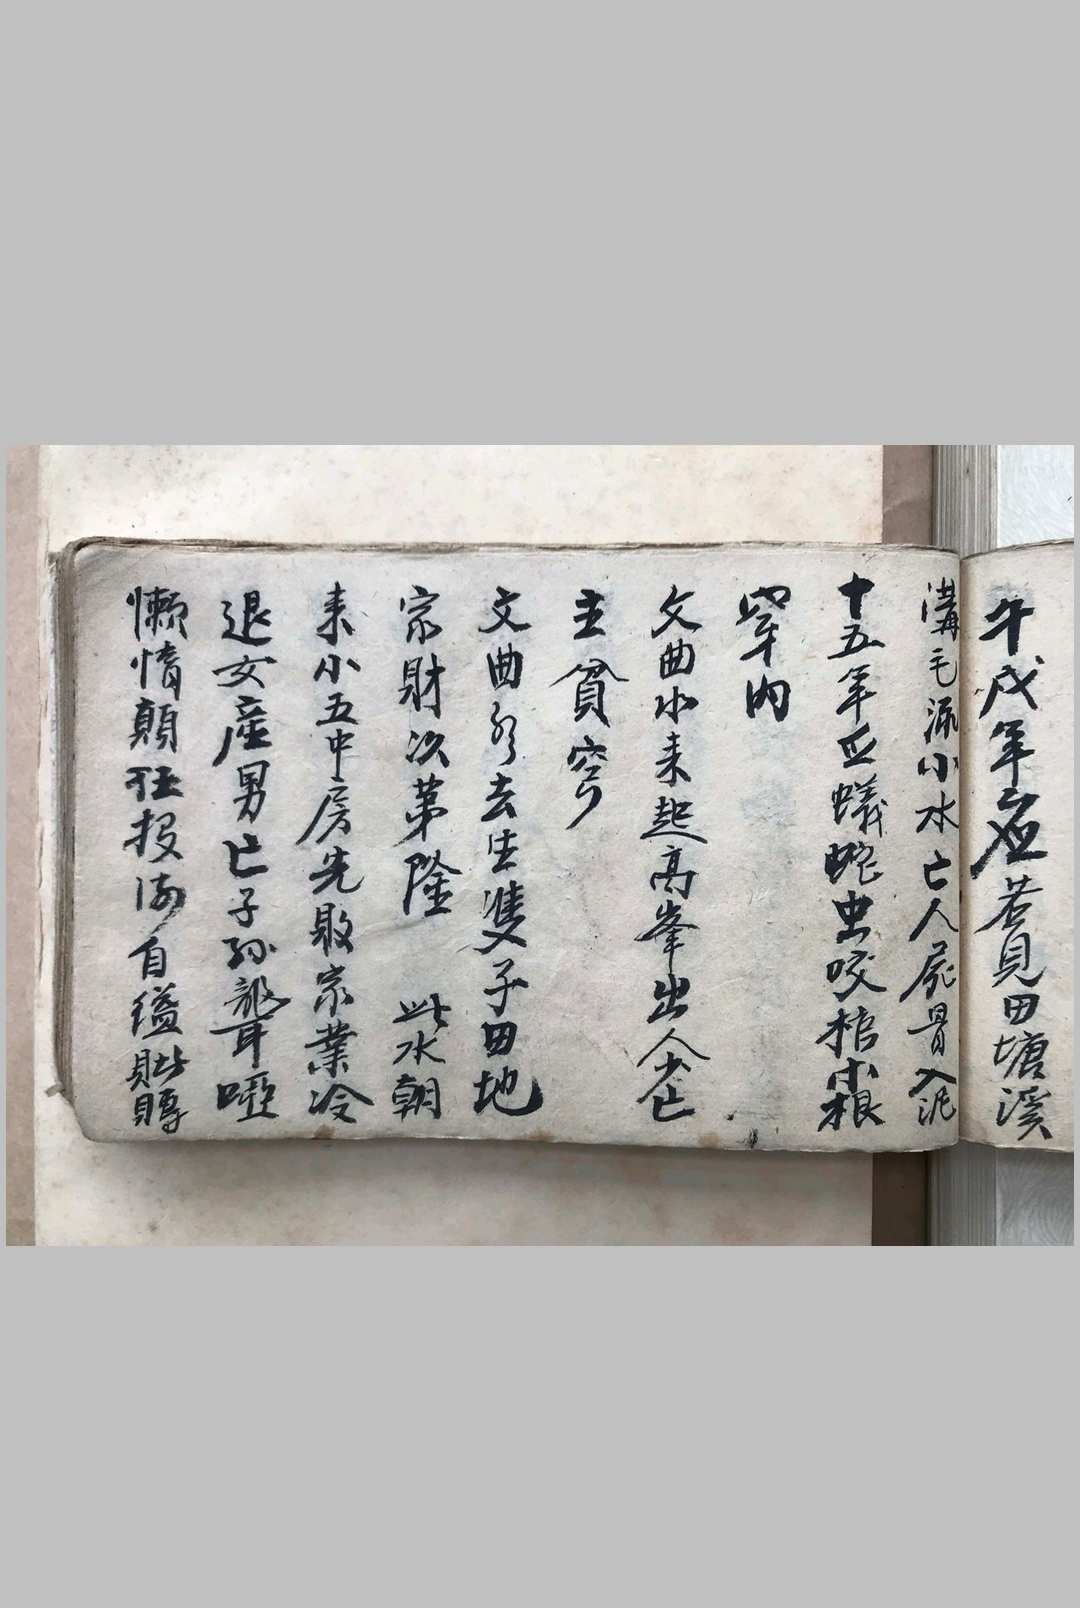 午戌年應若見田塘溪
溝毛流小水亡人屍骨入泥
十五年丘蟻蛇虫咬棺木根
穿内
文曲水来起高峯出人少亡
主貧窮
文曲水去生雙子田地
家財次第隆 此水朝
来小五中房先敗家業冷
退女産男亡子孫聾啞
懶惰顛狂投河自縊賍賻